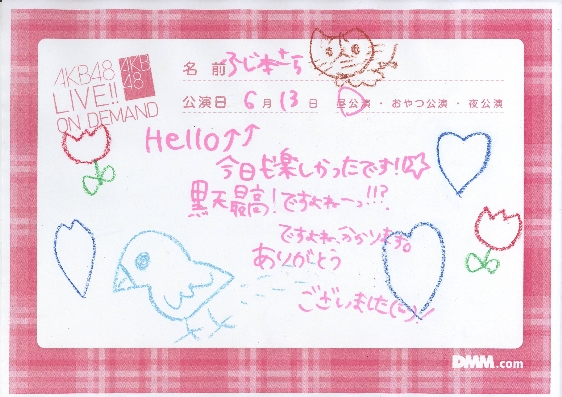 AKB48
LIVE!!
ON DEMAND
AKB
48
名前 ふじ本さち
公演日 6月13日 昼公演・おやつ公演・夜公演
Hello↑↑
今日も楽しかったです!☆
黒天最高!ですよねーっ!!?
ですよね、分かります。
ありがとう
ございました(^^)!!
DMM.com